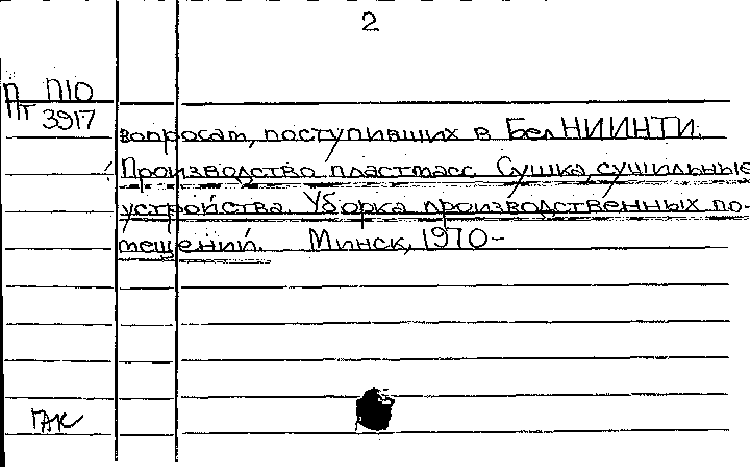 2
П П10
Пт 3917
вопросам, поступивших в БелНИИНТИ.
Производство пластмасс. Сушка, сушильные
устройства. Уборка производственных по-
мещений. Минск, 1970-
ГАК